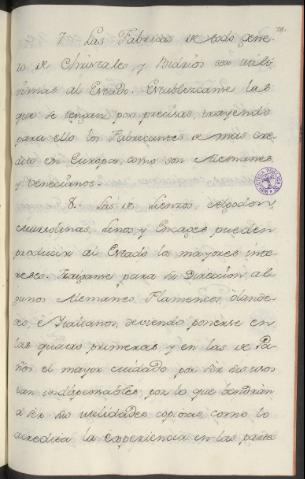 7. Las Fabricas de todo gene-
ro de Christales, y Vidrios son utilí-
simas al Estado. Establezcanse las
que se tengan por precisas, trayendo
para ello los Fabricantes de mas cre-
dito en Európa, como son Alemanes,
y Venecianos.
8. Las de Lienzos, Algodon,
Muselinas, Linos, y Encages pueden
producir al Estado los mayores inte-
reses. Traiganse para su Direccion al-
gunos Alemanes, Flamencos, Olande-
ses, è Italianos, deviendo ponerse en
las quatro primeras, y en las de Pa-
ños el mayor cuidado por ser sus usos
tan indispensables, por lo que vendrán
à ser sus utilidades copiosas como lo
acredita la experiencia en las partes